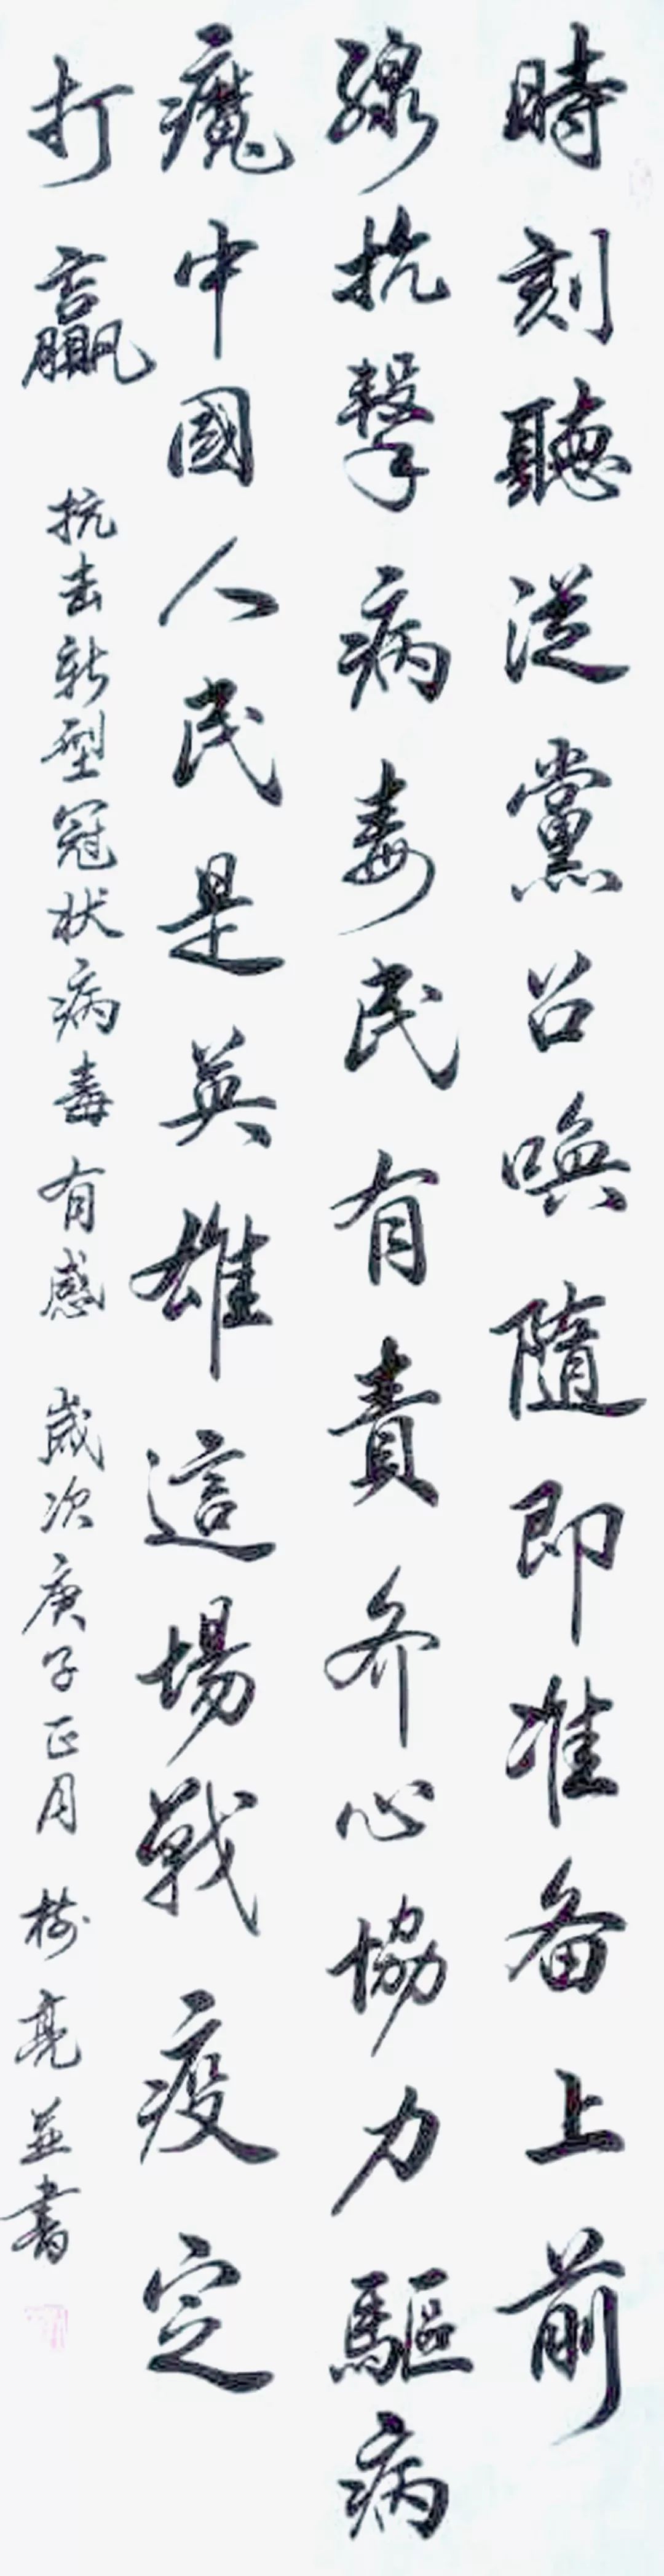 時刻聽從黨召唤隨即准备上前
線抗擊病毒民有責齐心協力驅病
魔中國人民是英雄這場戰疫定
打贏
抗击新型冠状病毒有感 歲次庚子正月 樹亮並書